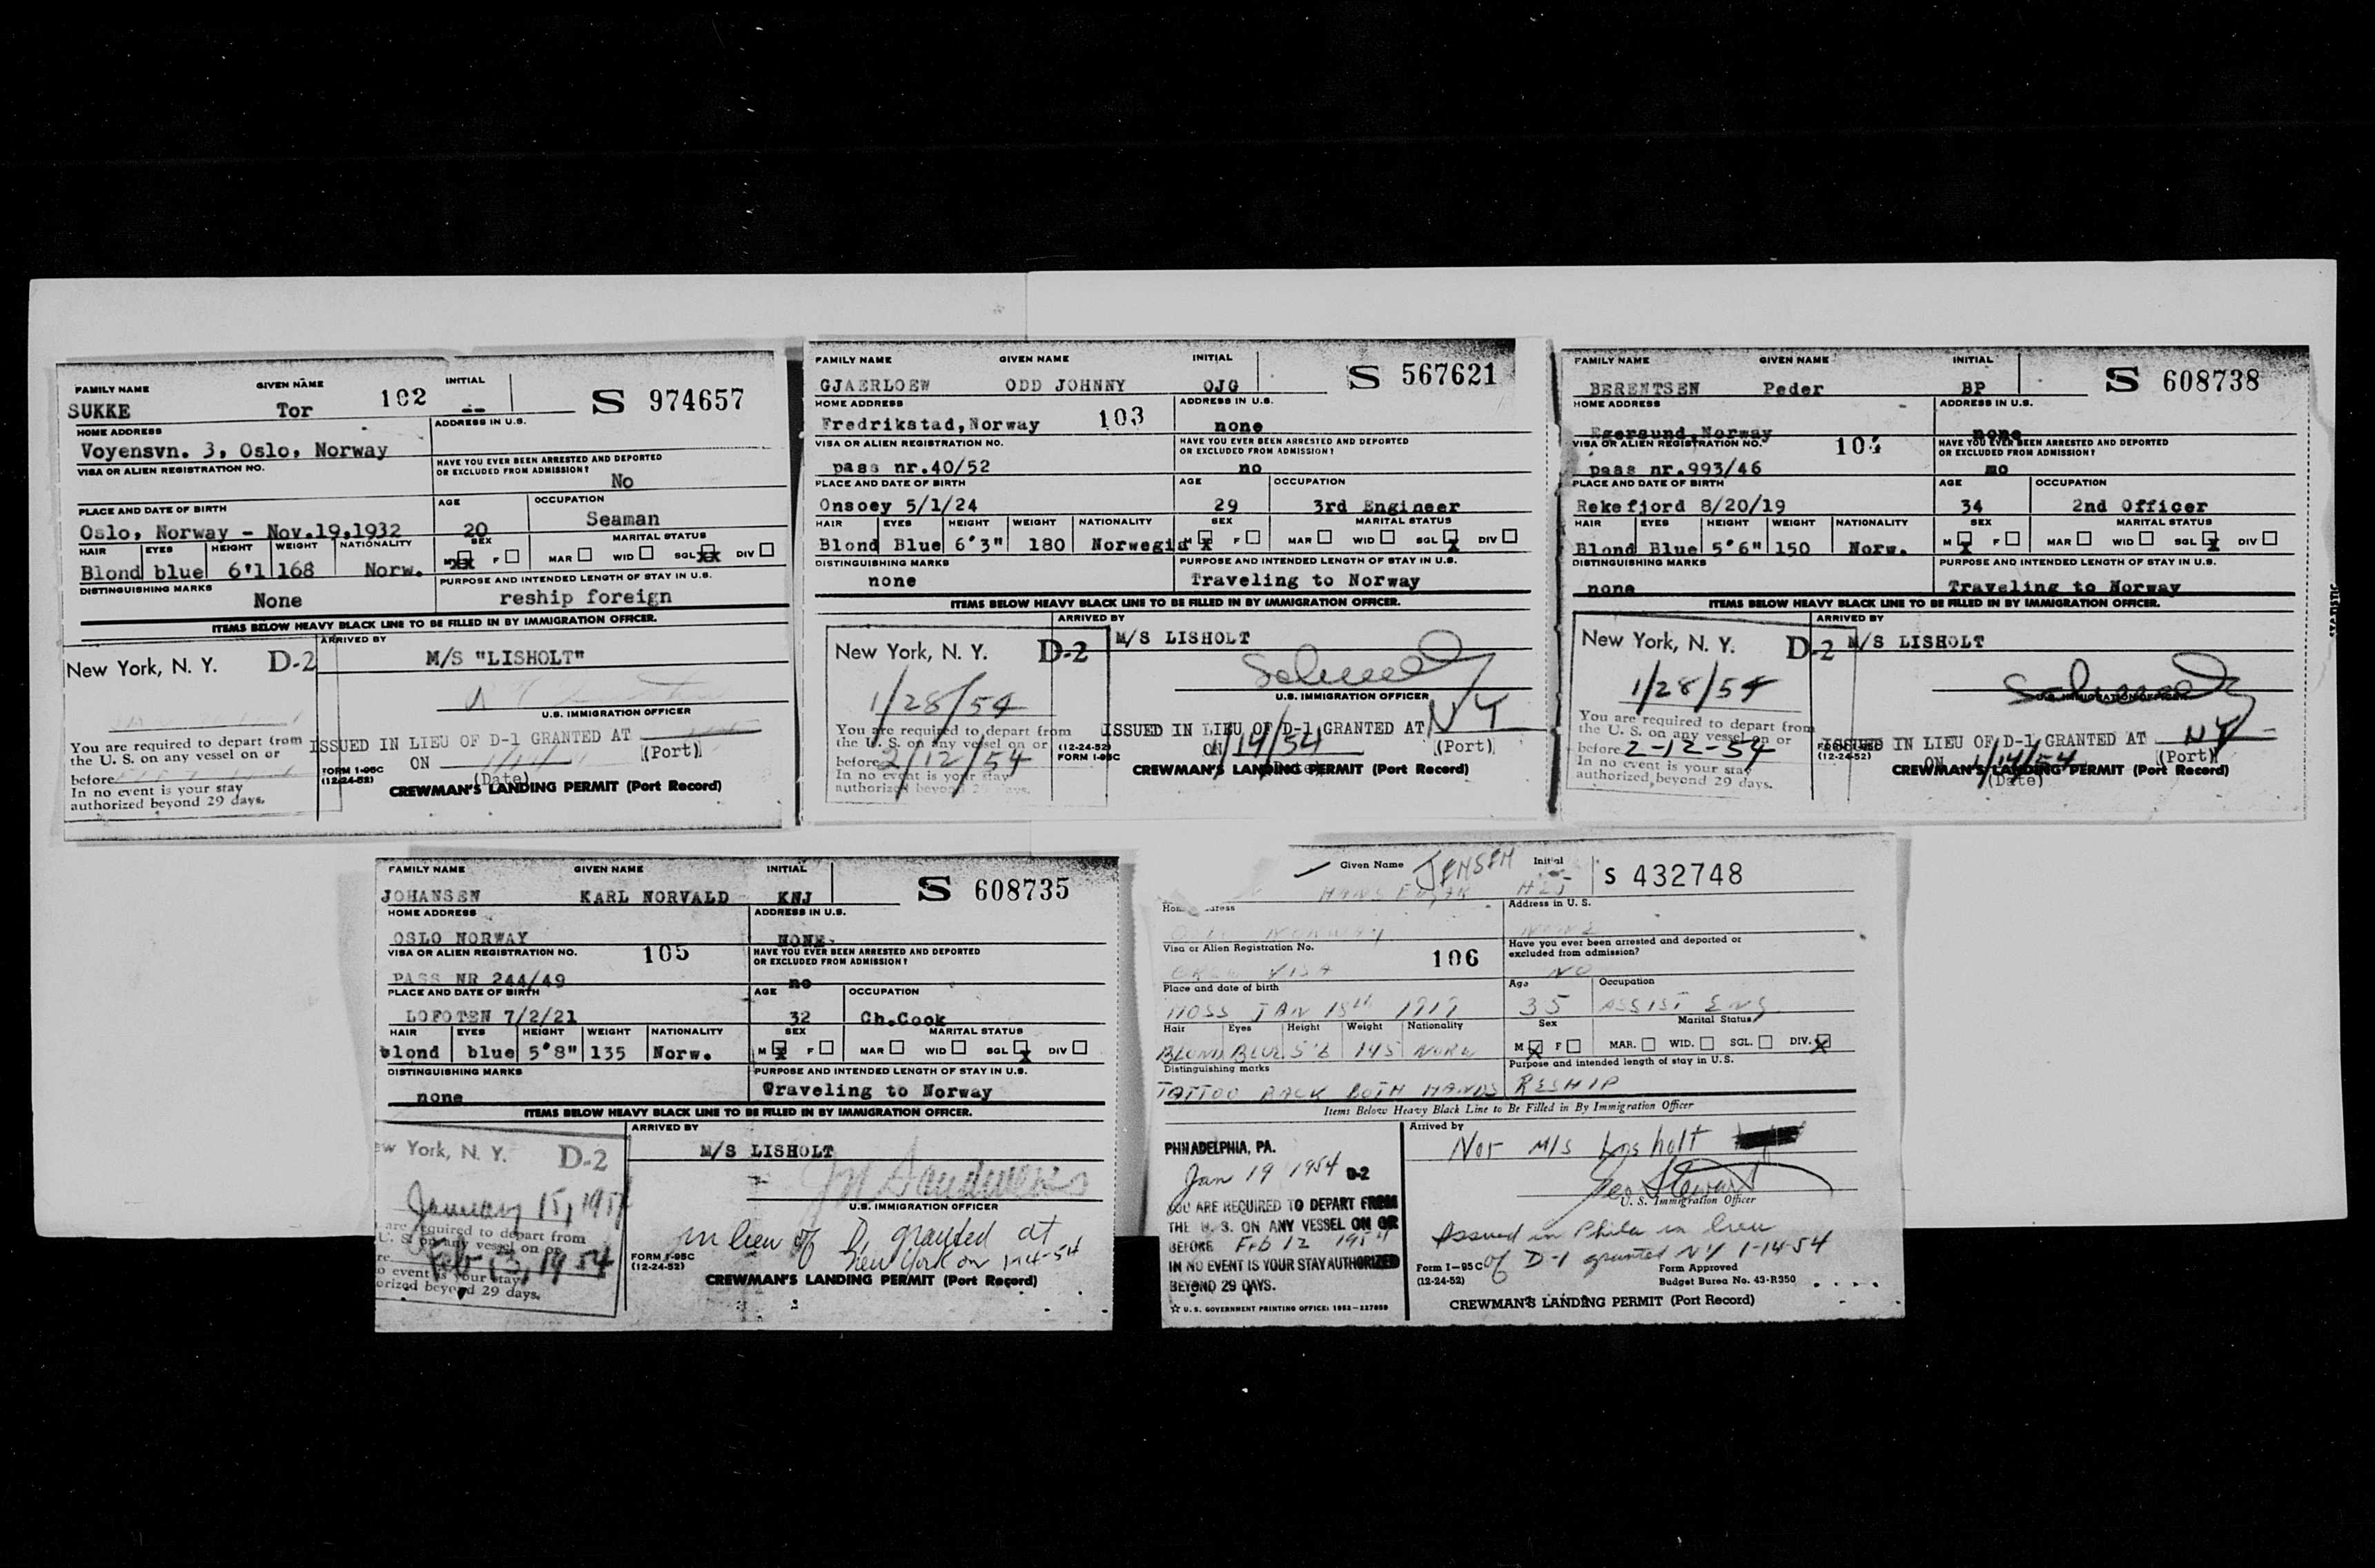 FAMILY NAME GIVEN NAME 102 INITIAL
SUKKE Tor -- S 974657
HOME ADDRESS ADDRESS IN U.S.
Voyensvn. 3, Oslo, Norway
VISA OR ALIEN REGISTRATION NO. HAVE YOU EVER BEEN ARRESTED AND DEPORTED
OR EXCLUDED FROM ADMISSION?
No
PLACE AND DATE OF BIRTH AGE OCCUPATION
Oslo, Norway - Nov.19,1932 20 Seaman
HAIR EYES HEIGHT WEIGHT NATIONALITY SEX MARITAL STATUS
M XX F MAR WID SGL XX DIV
Blond blue 6'1 168 Norw.
DISTINGUISHING MARKS PURPOSE AND INTENDED LENGTH OF STAY IN U.S.
None reship foreign
ITEMS BELOW HEAVY BLACK LINE TO BE FILLED IN BY IMMIGRATION OFFICER.
ARRIVED BY
New York, N. Y. D-2 M/S "LISHOLT"
U.S. IMMIGRATION OFFICER
You are required to depart from
the U. S. on any vessel on or
before
In no event is your stay
authorized beyond 29 days.
ISSUED IN LIEU OF D-1 GRANTED AT
(Port)
ON
(Date)
FORM I-95C
(12-24-52)
CREWMAN'S LANDING PERMIT (Port Record)
FAMILY NAME GIVEN NAME INITIAL
GJAERLOEW ODD JOHNNY OJG S 567621
HOME ADDRESS ADDRESS IN U.S.
Fredrikstad,Norway 103 none
VISA OR ALIEN REGISTRATION NO. HAVE YOU EVER BEEN ARRESTED AND DEPORTED
OR EXCLUDED FROM ADMISSION?
pass nr.40/52 no
PLACE AND DATE OF BIRTH AGE OCCUPATION
Onsoey 5/1/24 29 3rd Engineer
HAIR EYES HEIGHT WEIGHT NATIONALITY SEX MARITAL STATUS
Blond Blue 6'3" 180 Norwegia M X F MAR WID SGL X DIV
DISTINGUISHING MARKS PURPOSE AND INTENDED LENGTH OF STAY IN U.S.
none Traveling to Norway
ITEMS BELOW HEAVY BLACK LINE TO BE FILLED IN BY IMMIGRATION OFFICER.
ARRIVED BY
New York, N. Y. D-2 M/S LISHOLT
1/28/54
U.S. IMMIGRATION OFFICER
You are required to depart from
the U. S. on any vessel on or
before 2/12/54
In no event is your stay
authorized beyond 29 days.
ISSUED IN LIEU OF D-1 GRANTED AT NY
1/14/54 (Port)
(12-24-52)
FORM I-95C
CREWMAN'S LANDING PERMIT (Port Record)
FAMILY NAME GIVEN NAME INITIAL
BERENTSEN Peder BP S 608738
HOME ADDRESS ADDRESS IN U.S.
Egersund,Norway none
VISA OR ALIEN REGISTRATION NO. 104 HAVE YOU EVER BEEN ARRESTED AND DEPORTED
OR EXCLUDED FROM ADMISSION?
pass nr.993/46 mo
PLACE AND DATE OF BIRTH AGE OCCUPATION
Rekefjord 8/20/19 34 2nd Officer
HAIR EYES HEIGHT WEIGHT NATIONALITY SEX MARITAL STATUS
Blond Blue 5'6" 150 Norw. M X F MAR WID SGL X DIV
DISTINGUISHING MARKS PURPOSE AND INTENDED LENGTH OF STAY IN U.S.
none Traveling to Norway
ITEMS BELOW HEAVY BLACK LINE TO BE FILLED IN BY IMMIGRATION OFFICER.
ARRIVED BY
New York, N. Y. D-2 M/S LISHOLT
1/28/54
U.S. IMMIGRATION OFFICER
You are required to depart from
the U. S. on any vessel on or
before 2-12-54
In no event is your stay
authorized beyond 29 days.
ISSUED IN LIEU OF D-1 GRANTED AT NY
ON 1/14/54 (Port)
(Date)
(12-24-52)
CREWMAN'S LANDING PERMIT (Port Record)
FAMILY NAME GIVEN NAME INITIAL
JOHANSEN KARL NORVALD KNJ S 608735
HOME ADDRESS ADDRESS IN U.S.
OSLO NORWAY NONE.
VISA OR ALIEN REGISTRATION NO. 105 HAVE YOU EVER BEEN ARRESTED AND DEPORTED
OR EXCLUDED FROM ADMISSION?
PASS NR 244/49 no
PLACE AND DATE OF BIRTH AGE OCCUPATION
LOFOTEN 7/2/21 32 Ch.Cook
HAIR EYES HEIGHT WEIGHT NATIONALITY SEX MARITAL STATUS
blond blue 5'8" 135 Norw. M X F MAR WID SGL X DIV
DISTINGUISHING MARKS PURPOSE AND INTENDED LENGTH OF STAY IN U.S.
none Traveling to Norway
ITEMS BELOW HEAVY BLACK LINE TO BE FILLED IN BY IMMIGRATION OFFICER.
ARRIVED BY
ew York, N. Y. D-2 M/S LISHOLT
January 15, 1954
U.S. IMMIGRATION OFFICER
are required to depart from
U. S. on any vessel on or
re Feb 13, 1954
o event is your stay
orized beyond 29 days.
in lieu of D1 granted at
New York on 1-14-54
FORM I-95C
(12-24-52)
CREWMAN'S LANDING PERMIT (Port Record)
Given Name JENSEN Initial S 432748
HANS HEJ
Address in U. S.
NORWAY NONE
Visa or Alien Registration No. 106 Have you ever been arrested and deported or
excluded from admission?
CREW VISA NO
Place and date of birth Age Occupation
MOSS JAN 15th 1919 35 ASSIST ENG
Hair Eyes Height Weight Nationality Sex Marital Status
BLOND BLUE 5'6 145 NORW M X F MAR. WID. SGL. DIV. X
Distinguishing marks Purpose and intended length of stay in U.S.
TATTOO BACK BOTH HANDS RESHIP
Items Below Heavy Black Line to Be Filled in By Immigration Officer
Arrived by
PHILADELPHIA, PA. Nor M/S Lisholt
Jan 19 1954 D-2
Geo Stewart
U. S. Immigration Officer
YOU ARE REQUIRED TO DEPART FROM
THE U. S. ON ANY VESSEL ON OR
BEFORE Feb 12 1954
IN NO EVENT IS YOUR STAY AUTHORIZED
BEYOND 29 DAYS.
Issued in Phila in lieu
of D-1 granted NY 1-14-54
Form I-95C Form Approved
(12-24-52) Budget Burea No. 43-R350
☆ U. S. GOVERNMENT PRINTING OFFICE: 1952-227950
CREWMAN'S LANDING PERMIT (Port Record)